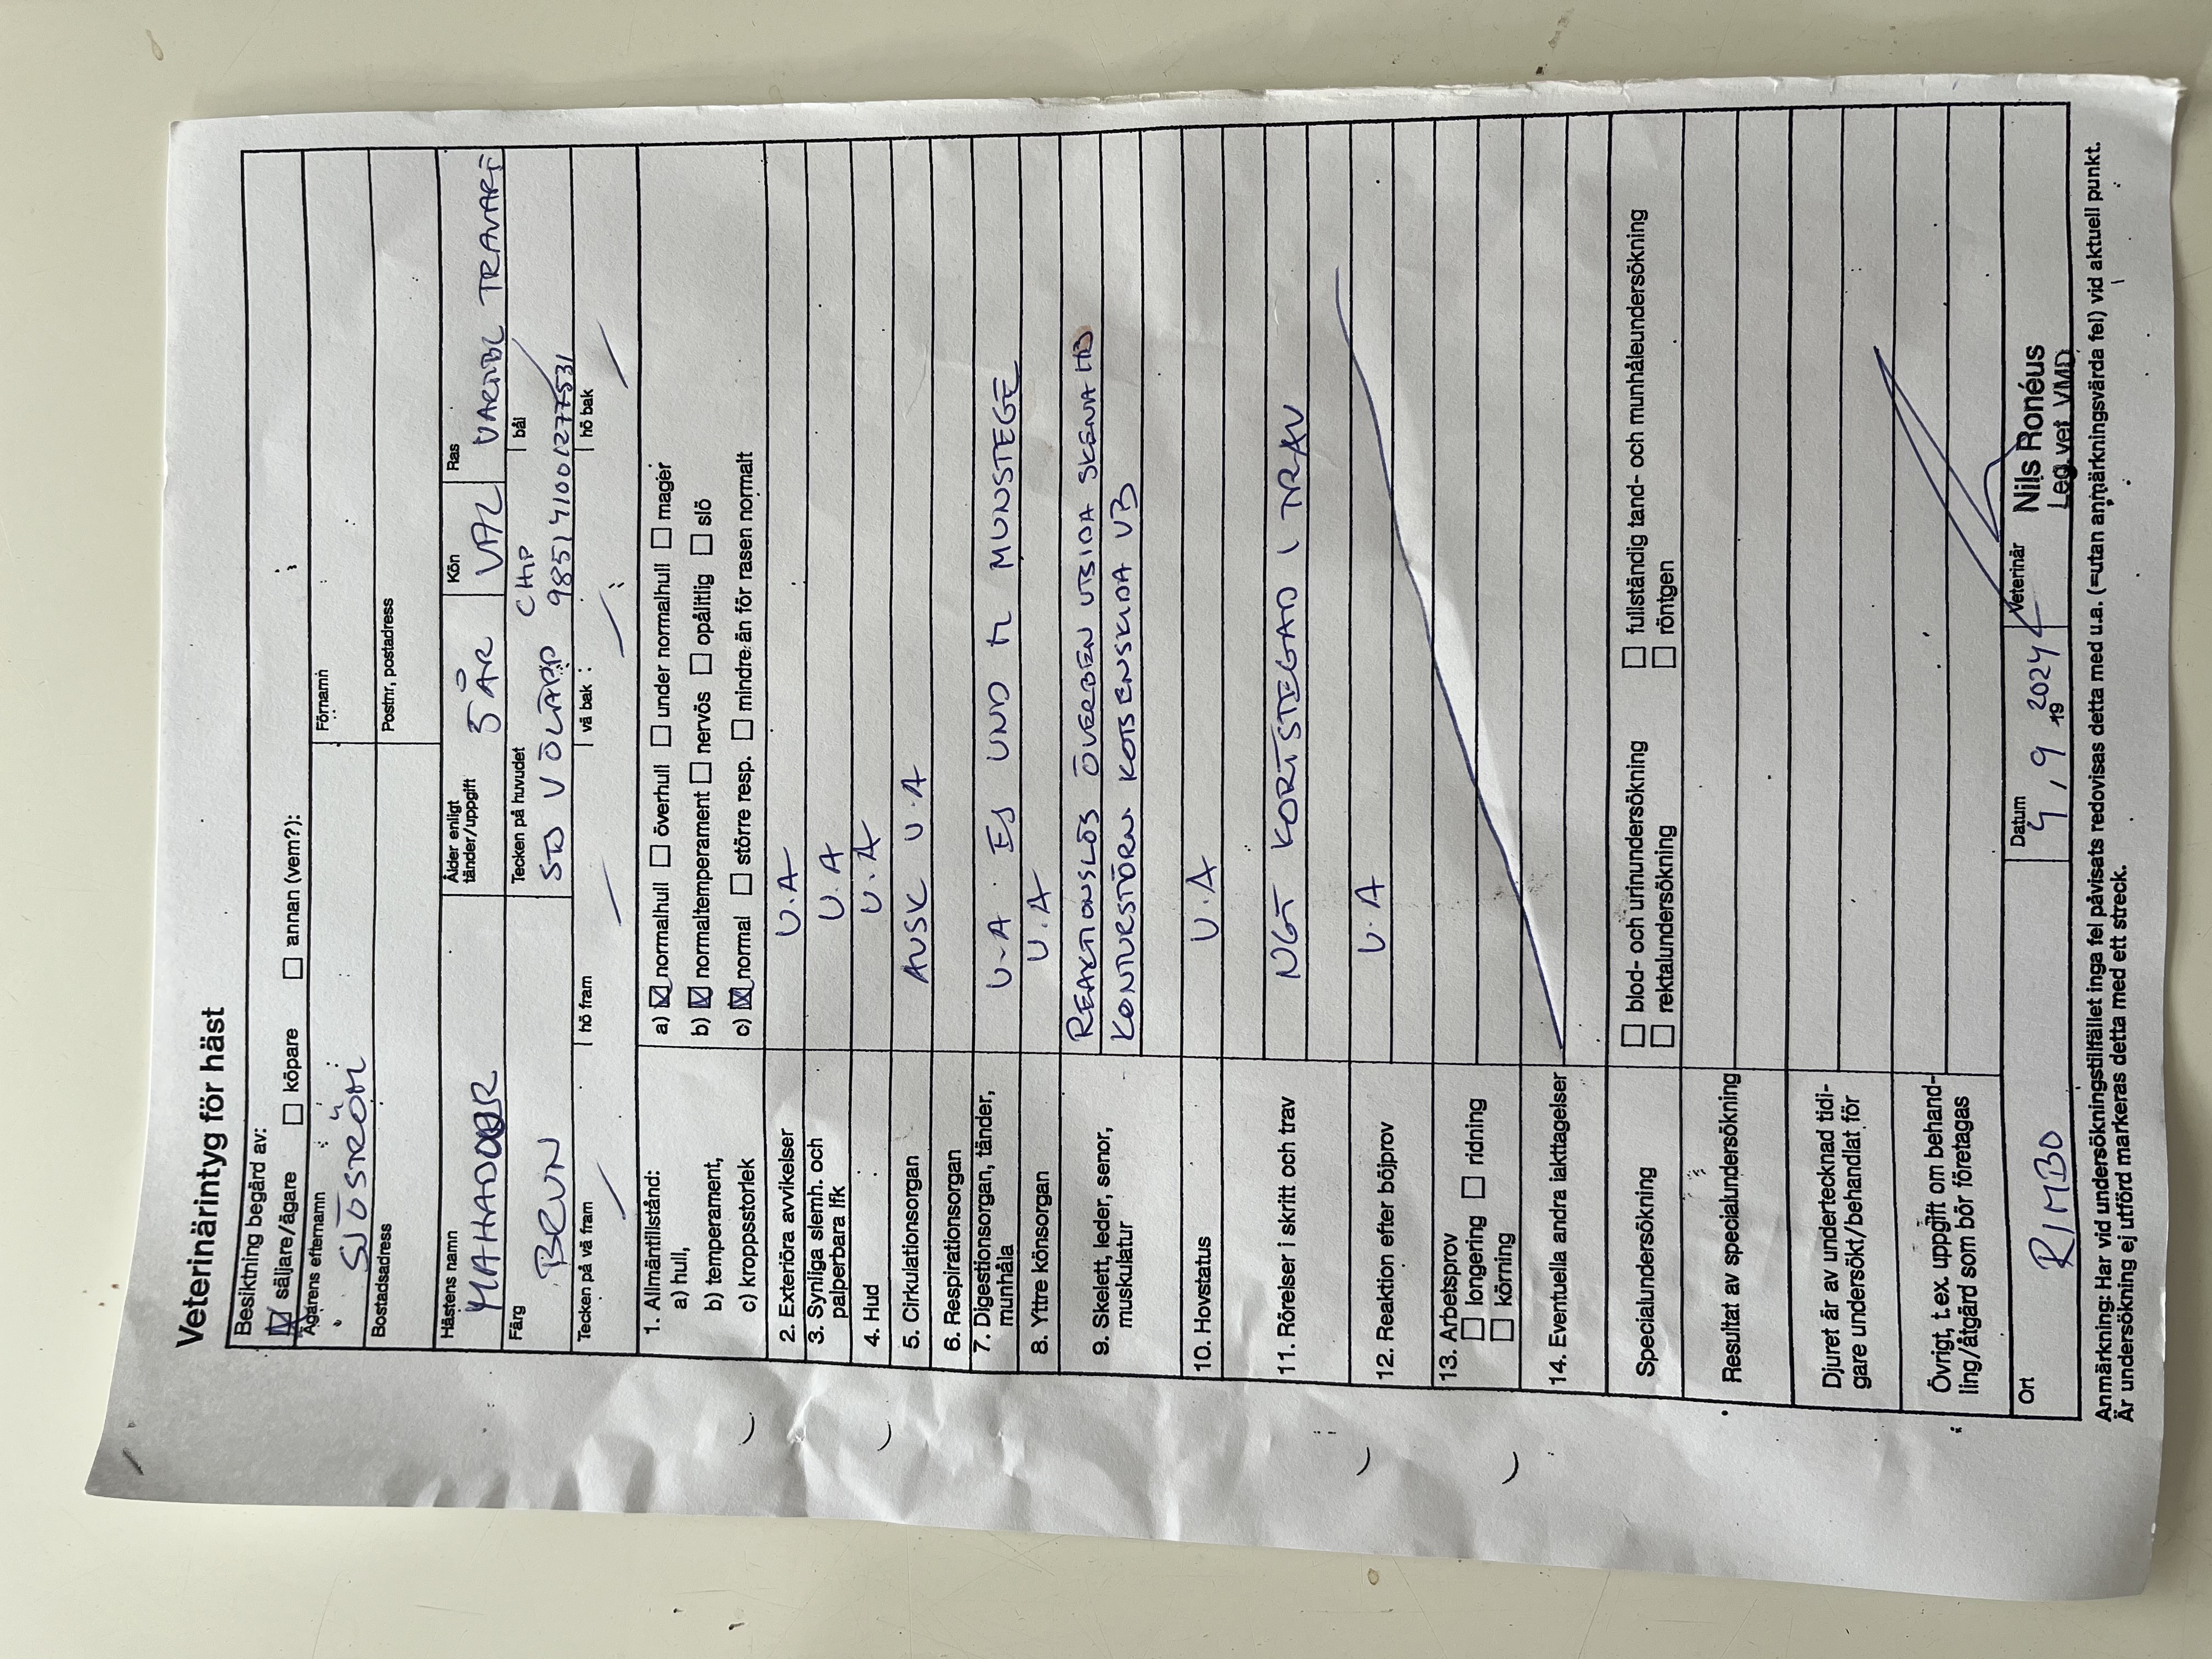 Veterinärintyg för häst
Besiktning begärd av:
säljare/ägare köpare annan (vem?):
Ägarens efternamn Förnamn
SJÖSTRÖM
Bostadsadress Postnr, postadress
Hästens namn Ålder enligt tänder/uppgift Kön Ras
5 ÅR VAL VARMBL TRAVARE
Färg Tecken på huvudet bål
BRUN CHIP
985141000127753
Tecken på vä fram hö fram vä bak: hö bak
1. Allmäntillstånd:
a) hull, a) normalhull överhull under normalhull mager
b) temperament, b) normaltemperament nervös opålitlig slö
c) kroppsstorlek c) normal större resp. mindre än för rasen normalt
2. Exteriöra avvikelser U.A
3. Synliga slemh. och
palperbara lfk U.A
4. Hud U.A
5. Cirkulationsorgan AUSK U.A
6. Respirationsorgan
7. Digestionsorgan, tänder,
munhåla U.A EJ UND M MUNSTEGE
8. Yttre könsorgan U.A
9. Skelett, leder, senor,
muskulatur
REAKTIONSLÖS ÖVERBEN UTSIDA SKENA HB
KONTURSTÖRN. KOTSENSKIDA VB
10. Hovstatus U.A
11. Rörelser i skritt och trav NGT KORTSTEGAD I TRAV
12. Reaktion efter böjprov U.A
13. Arbetsprov
longering ridning
körning
14. Eventuella andra iakttagelser
Specialundersökning
blod- och urinundersökning fullständig tand- och munhåleundersökning
rektalundersökning röntgen
Resultat av specialundersökning
Djuret är av undertecknad tidi-
gare undersökt/behandlat för
Övrigt, t.ex. uppgift om behand-
ling/åtgärd som bör företagas
Ort Datum Veterinär
RIMBO 4, 9 19 2024 Nils Ronéus
Leg. vet VMD
Anmärkning: Har vid undersökningstillfället inga fel påvisats redovisas detta med u.a. (=utan anmärkningsvärda fel) vid aktuell punkt.
Är undersökning ej utförd markeras detta med ett streck.